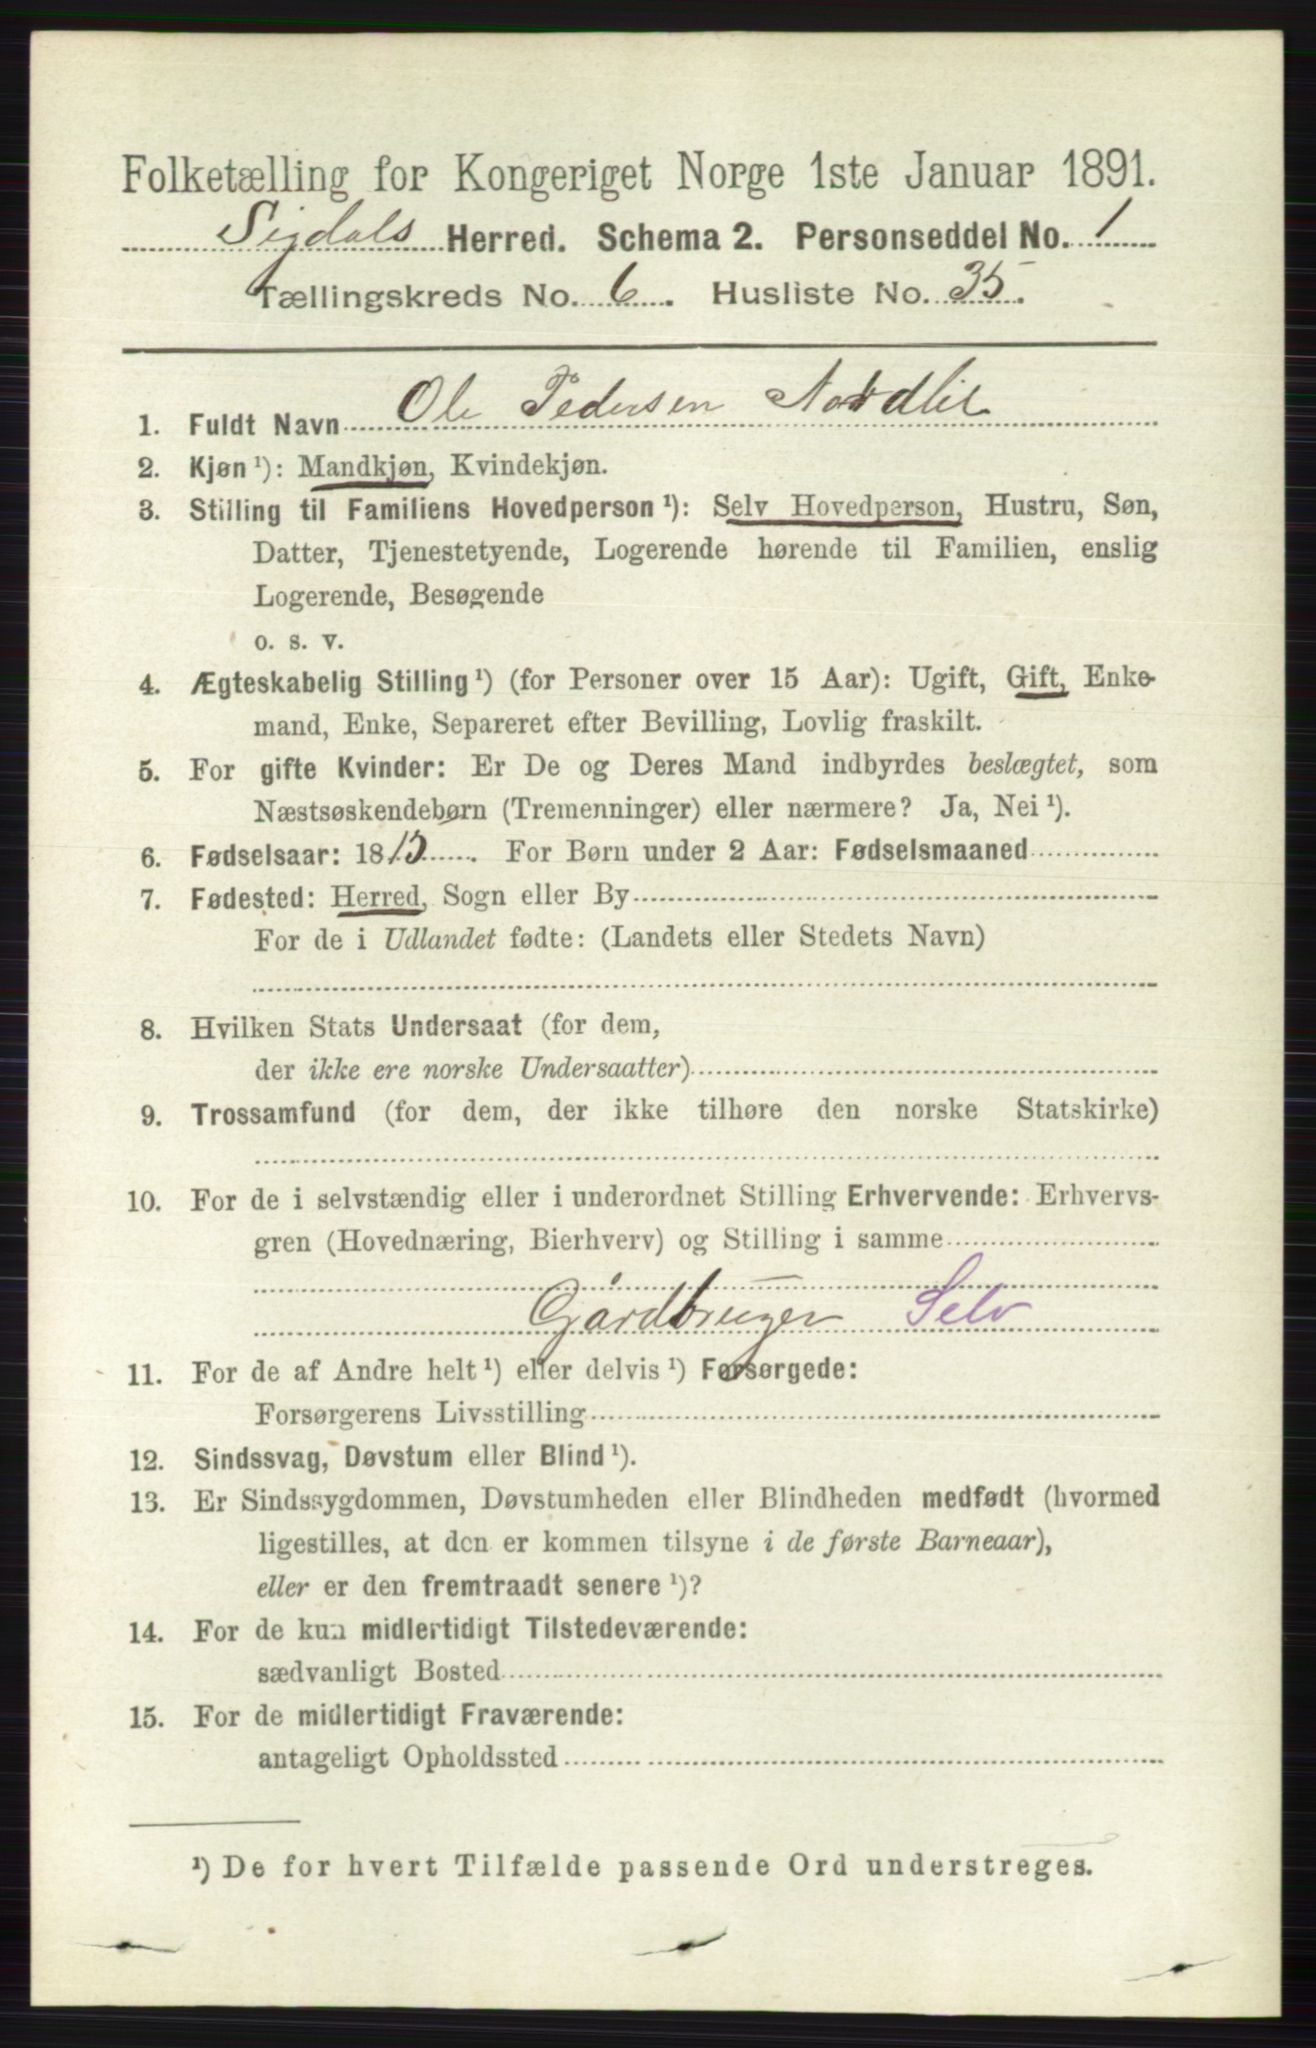 Folketælling for Kongeriget Norge 1ste Januar 1891.
Sigdals Herred. Schema 2. Personseddel No. 1
Tællingskreds No. 6. Husliste No. 35.
1. Fuldt Navn Ole Pedersen Nordlie
2. Kjøn ¹): Mandkjøn, Kvindekjøn.
3. Stilling til Familiens Hovedperson ¹): Selv Hovedperson, Hustru, Søn,
Datter, Tjenestetyende, Logerende hørende til Familien, enslig
Logerende, Besøgende
o. s. v.
4. Ægteskabelig Stilling ¹) (for Personer over 15 Aar): Ugift, Gift, Enke-
mand, Enke, Separeret efter Bevilling, Lovlig fraskilt.
5. For gifte Kvinder: Er De og Deres Mand indbyrdes beslægtet, som
Næstsøskendebørn (Tremenninger) eller nærmere? Ja, Nei ¹).
6. Fødselsaar: 18 . For Børn under 2 Aar: Fødselsmaaned
7. Fødested: Herred, Sogn eller By
For de i Udlandet fødte: (Landets eller Stedets Navn)
8. Hvilken Stats Undersaat (for dem,
der ikke ere norske Undersaatter)
9. Trossamfund (for dem, der ikke tilhøre den norske Statskirke)
10. For de i selvstændig eller i underordnet Stilling Erhvervende: Erhvervs-
gren (Hovednæring, Bierhverv) og Stilling i samme
Gårdbruger Selv
11. For de af Andre helt ¹) eller delvis ¹) Forsørgede:
Forsørgerens Livsstilling
12. Sindssvag, Døvstum eller Blind ¹).
13. Er Sindssygdommen, Døvstumheden eller Blindheden medfødt (hvormed
ligestilles, at den er kommen tilsyne i de første Barneaar),
eller er den fremtraadt senere ¹)?
14. For de kun midlertidigt Tilstedeværende:
sædvanligt Bosted
15. For de midlertidigt Fraværende:
antageligt Opholdssted
¹) De for hvert Tilfælde passende Ord understreges.